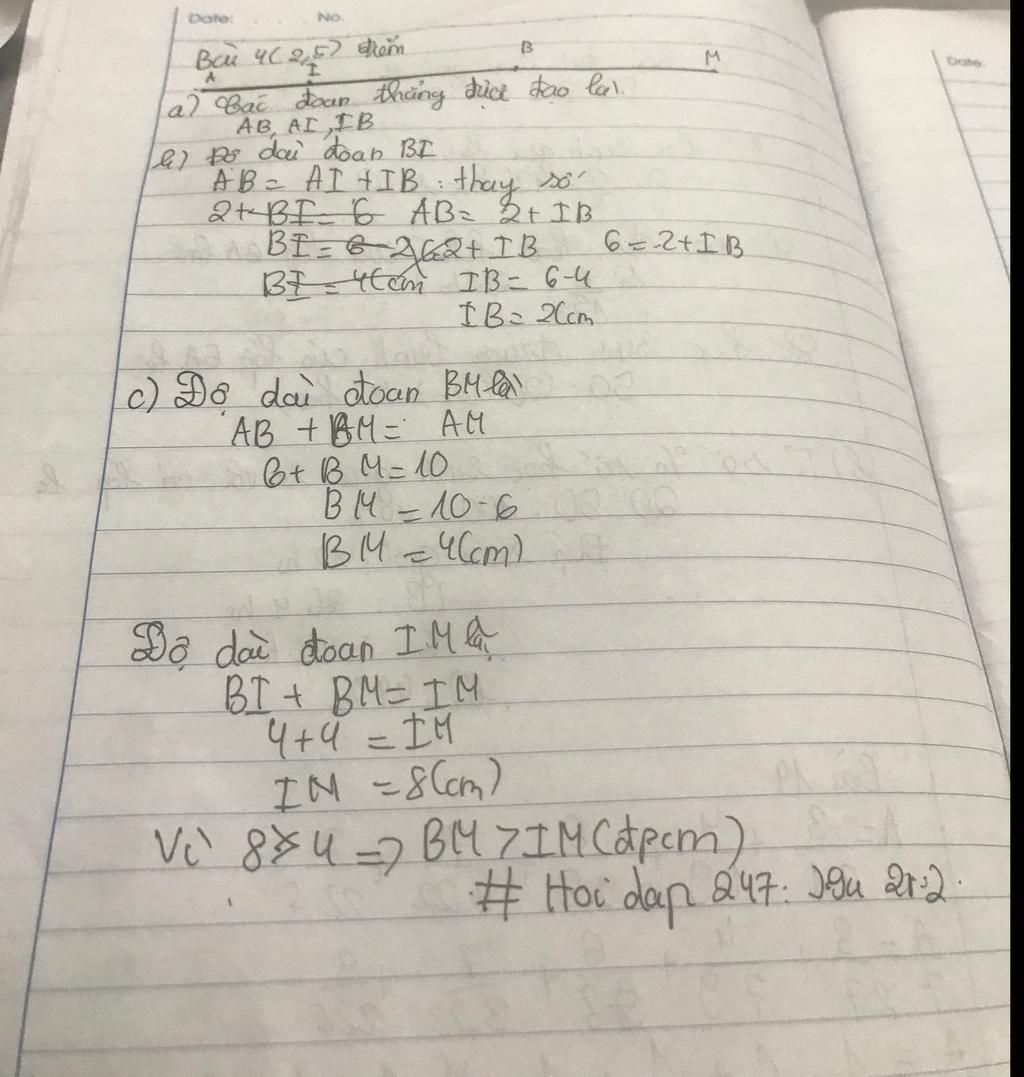 Date: No.
Bài 4(2,5) điểm
A I B M
a) Các đoạn thẳng được tạo là.
AB, AI, IB
b) Độ dài đoạn BI
AB = AI + IB. thay số
2+ BI = 6 AB = 2 + IB
BI = 6 - 2 6=2+ IB 6 = 2 + IB
BI = 4(cm IB = 6-4
IB = 2(cm
c) Độ dài đoan BM là
AB + BM = AM
6 + BM = 10
BM = 10-6
BM = 4(cm)
Độ dài đoan IM là
BI + BM = IM
4+4 = IM
IM = 8(cm)
Vì 8 > 4 => BM > IM (đpcm)
# Hoi dap 247.
Date